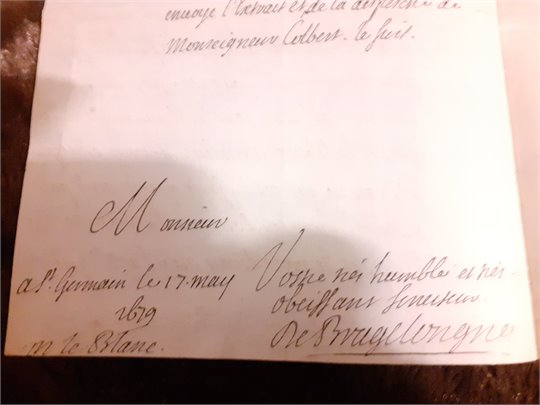 envoye l'Extrait et de la despesche de
Monseigneur Colbert. le suis.
Monsieur
a St. Germain le 17. may
1679
Vostre tres humble et tres
obeissant serviteur.
De Bragelongne
m le Blanc.